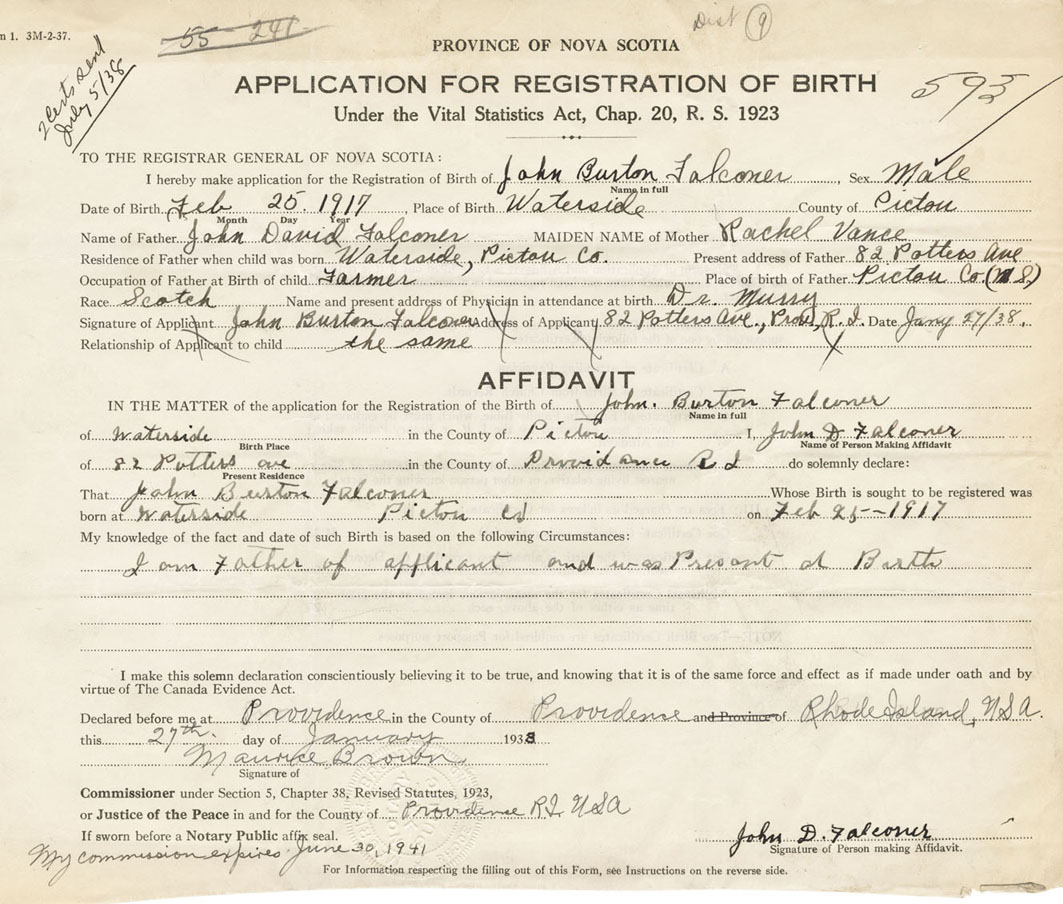 Dist 9
n 1. 3M-2-37.
55 241
2 Certs sent
July 5/38
PROVINCE OF NOVA SCOTIA
APPLICATION FOR REGISTRATION OF BIRTH
593
Under the Vital Statistics Act, Chap. 20, R. S. 1923
TO THE REGISTRAR GENERAL OF NOVA SCOTIA:
I hereby make application for the Registration of Birth of John Burton Falconer, Sex Male
Name in full
Date of Birth Feb 25. 1917, Place of Birth Waterside County of Pictou
Month Day Year
Name of Father John David Falconer MAIDEN NAME of Mother Rachel Vance
Residence of Father when child was born Waterside, Pictou Co. Present address of Father 82 Potters Ave
Occupation of Father at Birth of child Farmer Place of birth of Father Pictou Co. (N.S.)
Race Scotch Name and present address of Physician in attendance at birth Dr. Murry
Signature of Applicant John Burton Falconer Address of Applicant 82 Potters Ave., Prov, R.I. Date Jany 27/38.
Relationship of Applicant to child the same
AFFIDAVIT
IN THE MATTER of the application for the Registration of the Birth of John. Burton Falconer
Name in full
of Waterside in the County of Pictou I, John D Falconer
Birth Place Name of Person Making Affidavit
of 82 Potters ave in the County of Providance R I do solemnly declare:
Present Residence
That John Burton Falconer Whose Birth is sought to be registered was
born at Waterside Picton Co on Feb 25--1917
My knowledge of the fact and date of such Birth is based on the following Circumstances:
I am Father of applicant and was Presant at Barth
I make this solemn declaration conscientiously believing it to be true, and knowing that it is of the same force and effect as if made under oath and by
virtue of The Canada Evidence Act.
Declared before me at Providence in the County of Providence and Province of Rhode Island, USA.
this 27th. day of January 1938
Maurice Brown
Signature of
Commissioner under Section 5, Chapter 38, Revised Statutes, 1923,
or Justice of the Peace in and for the County of Providence RI USA
If sworn before a Notary Public affix seal.
John D. Falconer
My commission expires June 30, 1941
Signature of Person making Affidavit.
For Information respecting the filling out of this Form, see Instructions on the reverse side.